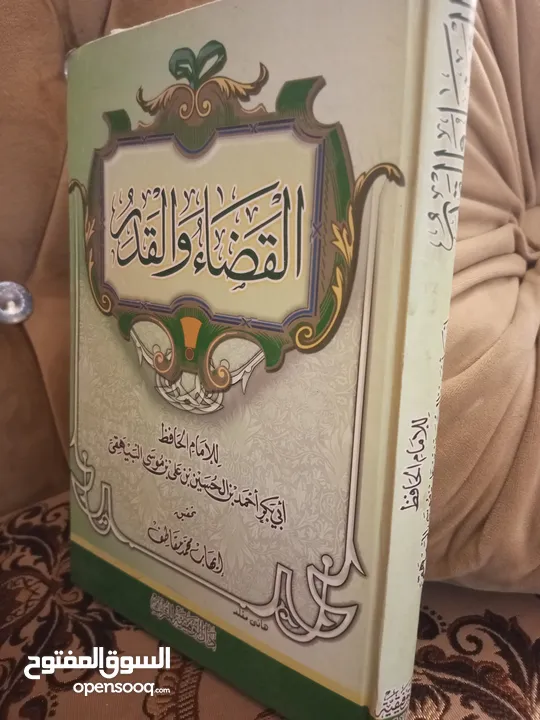 القَضَاءُ وَالقَدَرُ
لِلإمَامِ الحَافِظ
أَبِي بَكْرٍ أَحْمَدَ بْنِ الحُسَيْنِ بْنِ عَلِيِّ بْنِ مُوسَى البَيْهَقِيّ
تحقيق
إيهاب محمد
هاني
القضاء والقدر
لِلإمَامِ الحَافِظ
السوق المفتوح
opensooq.com